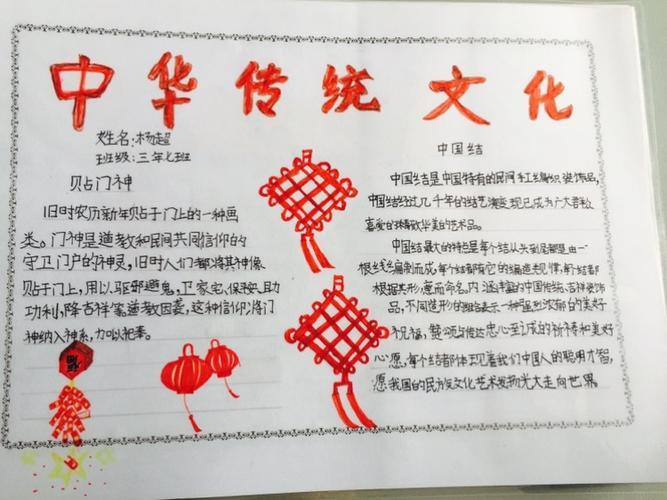 中华传统文化
姓名:杨超
班级:三年七班
贴门神
旧时农历新年贴于门上的一种画
类。门神是道教和民间共同信仰的
守卫门户的神灵,旧时人们都将其神像
贴于门上,用以驱邪避鬼,卫家宅,保平安,且助
功利,降吉祥等道教因袭,这种信仰将门
神纳入神系,加以祀奉。
福
中国结
中国结是中国特有的民间手工编织装饰品,
中国结经过几千年的结艺演变,现已成为广大群众
喜爱的精致华美的艺术品。
中国结最大的特是每个结从头到尾都是由一
根丝线编制而成,每个结都有它的编造规律,每个结都
根据其形,意而命名,内涵丰富的中国传统吉祥装饰
品,不同造形的表示一种浓郁的美好
祝福,赞颂与传达忠心至诚的祈祷和美好
心愿,每个结都体现着我们中国人的聪明才智,
愿我国的民族文化艺术发扬光大走向世界。